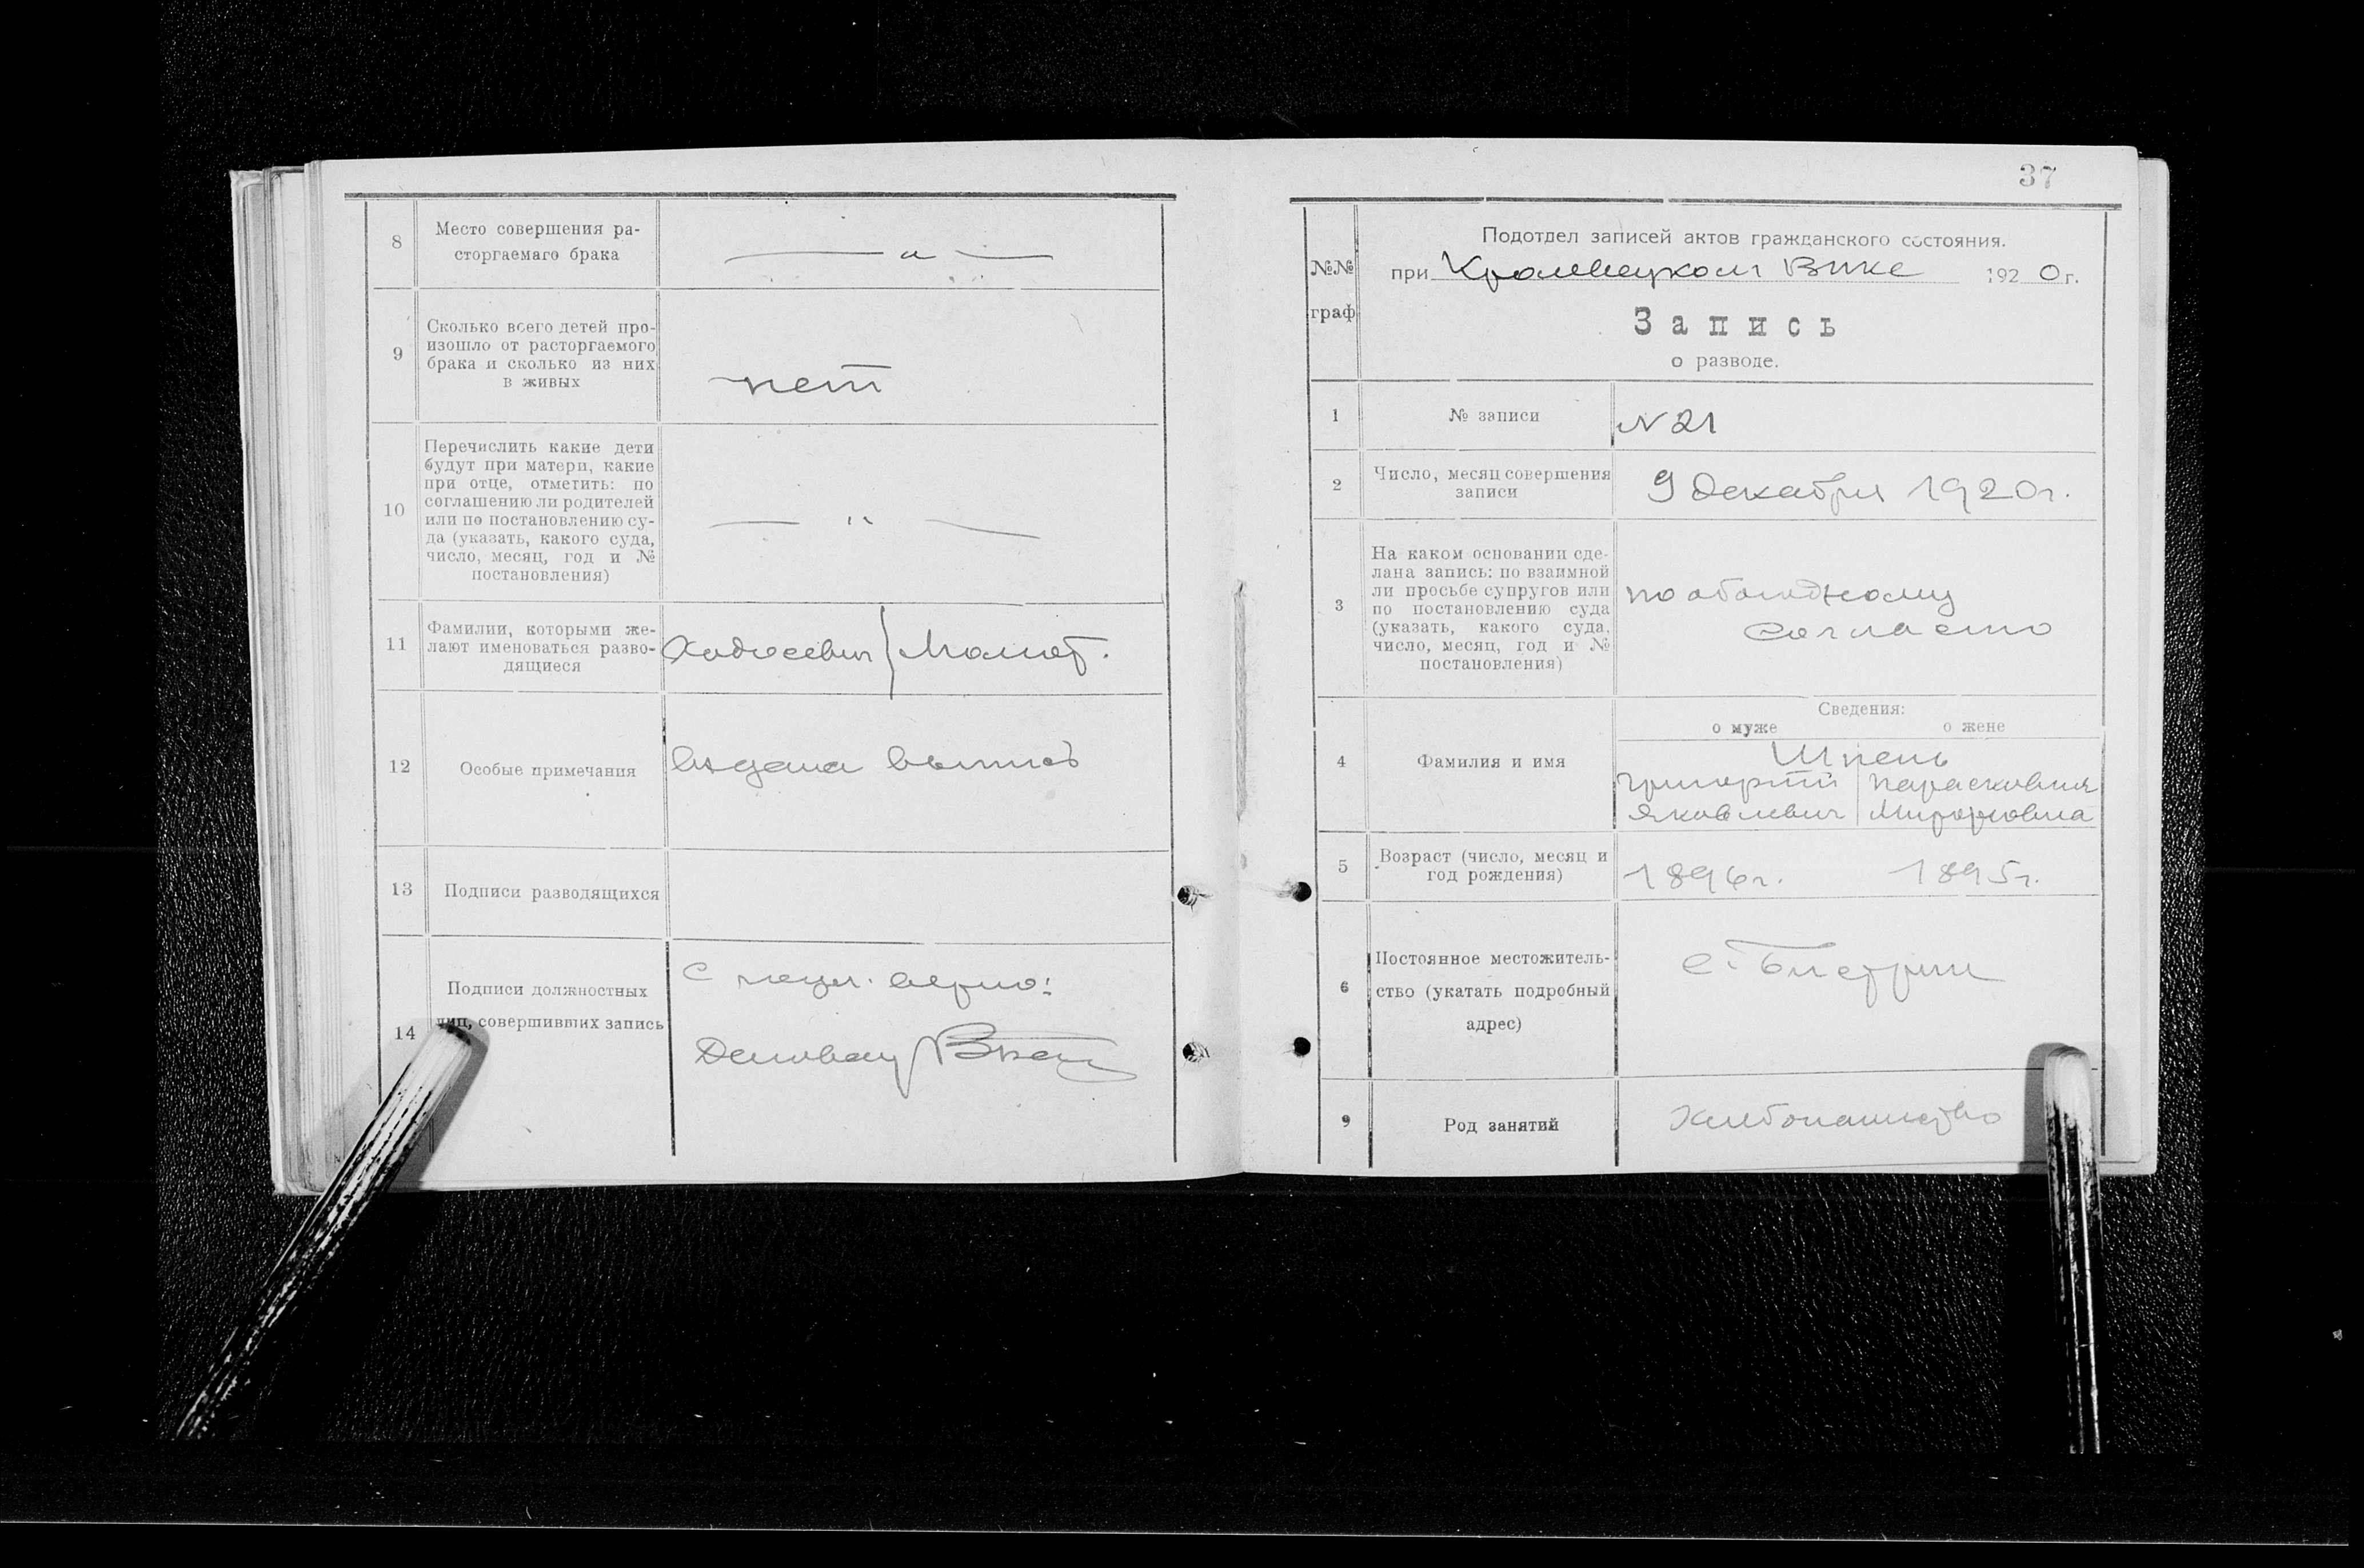 8
Место совершения ра-
сторгаемаго брака
— „ —
9
Сколько всего детей про-
изошло от расторгаемого
брака и сколько из них
в живых
нет
10
Перечислить какие дети
будут при матери, какие
при отце, отметить: по
соглашению ли родителей
или по постановлению су-
да (указать, какого суда,
число, месяц, год и №
постановления)
— „ —
11
Фамилии, которыми же-
лают именоваться разво-
дящиеся
Ходосевич
12
Особые примечания
выпись
13
Подписи разводящихся
14
Подписи должностных
лиц, совершивших запись
верно:
37
№№
граф
Подотдел записей актов гражданского состояния.
при Кролевецком Вике 1920г.
Запись
о разводе.
1
№ записи
N 21
2
Число, месяц совершения
записи
9 декабря 1920г.
3
На каком основании сде-
лана запись: по взаимной
ли просьбе супругов или
по постановлению суда
(указать, какого суда,
число, месяц, год и №
постановления)
по обоюдному
4
Фамилия и имя
Сведения:
о муже о жене
Шпень
Григорий Парасковия
Яковлевич Мироновна
5
Возраст (число, месяц и
год рождения)
1896г. 1895г.
6
Постоянное местожитель-
ство (укатать подробный
адрес)
9
Род занятий
Хлебопашество